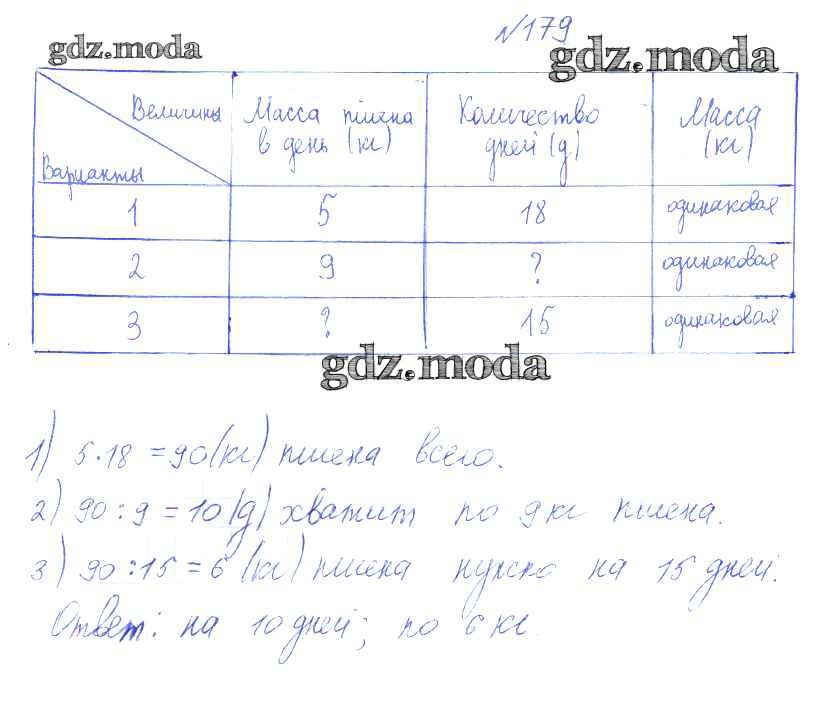 №179
gdz.moda
gdz.moda
Величины Варианты Масса пшена в день (кг) Количество дней (д) Масса (кг)
1 5 18 одинаковая
2 9 ? одинаковая
3 ? 15 одинаковая
gdz.moda
1) 5·18=90(кг) пшена всего.
2) 90:9=10(д) хватит по 9кг пшена.
3) 90:15=6 (кг) пшена нужно на 15 дней.
Ответ: на 10 дней; по 6 кг.